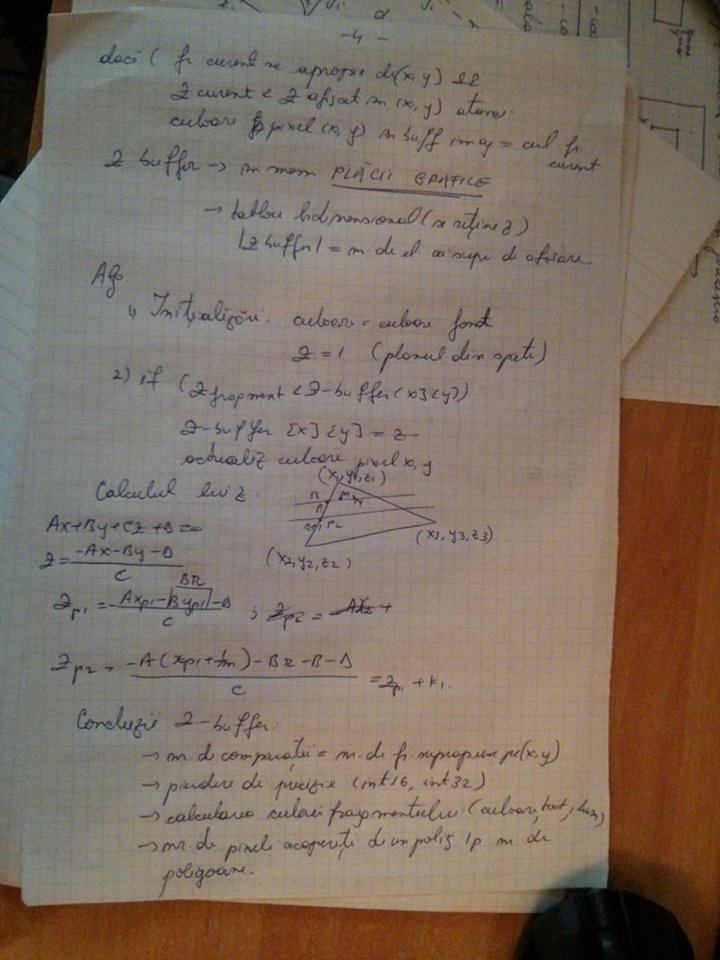 -4-
dacă ( fr curent se apropie de (x, y) ȘI
Z curent < Z afișat în (x, y) atunci
culoare pixel (x, y) în buff imag = cul. fr.
curent
Z buffer → în mem PLĂCII GRAFICE
→ tablou bidimensional (se reține z)
|z buffer| = nr de el. ai supr. de afișare
Alg.
1) Inițializări: culoare = culoare fond
Z = 1 (planul din spate)
2) if (Z fragment < Z-buffer [x][y])
Z-buffer [x][y] = z
actualiz culoare pixel x, y
Calculul lui z:
(x1, y1, z1)
(x2, y2, z2)
(x3, y3, z3)
Ax+By+Cz+D=0
Z = -Ax-By-D / C
BR
Zp1 = -Axp1-Byp1-D / C
Zp2 = -A(xp1+1/m)-BR-B-D / C = Zp1 + K1.
Concluzii Z-buffer:
→ nr. de comparații = nr. de fr. suprapuse pe (x, y)
→ pierdere de precizie (int16, int32)
→ calcularea culorii fragmentului (culoare, text, lum)
→ nr. de pixeli acoperiți de un polig 1p nr. de
poligoane.